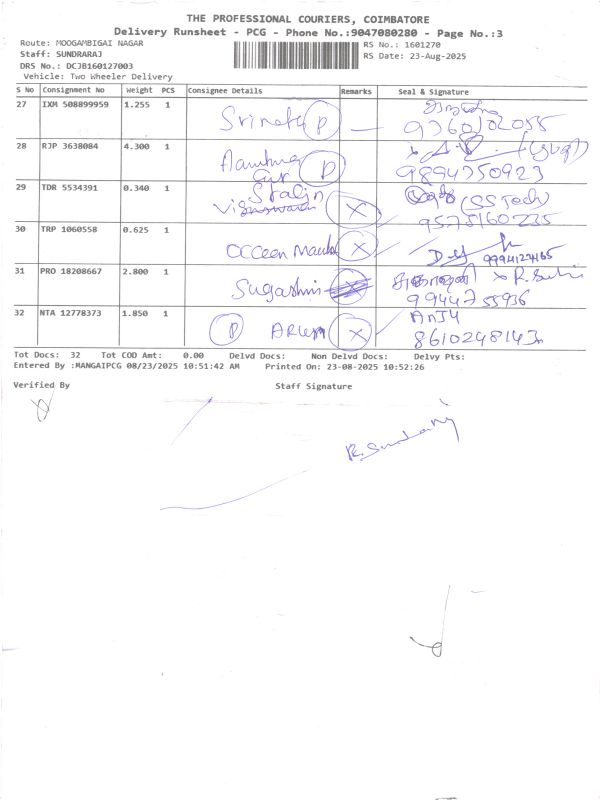 THE PROFESSIONAL COURIERS, COIMBATORE
Delivery Runsheet - PCG - Phone No.:9047080280 - Page No.:3
Route: MOOGAMBIGAI NAGAR
RS No.: 1601270
Staff: SUNDRARAJ
RS Date: 23-Aug-2025
DRS No.: DCJB160127003
Vehicle: Two Wheeler Delivery
S No Consignment No Weight PCS Consignee Details Remarks Seal & Signature
27 IXM 508899959 1.255 1 P
28 RJP 3638084 4.300 1 P
9894750923
29 TDR 5534391 0.340 1 Stalin X (SS Tech)
9578160235
30 TRP 1060558 0.625 1 X
31 PRO 18208667 2.800 1 Sugashini
9944755936
32 NTA 12778373 1.850 1 P ARUN X
8610248143
Tot Docs: 32 Tot COD Amt: 0.00 Delvd Docs: Non Delvd Docs: Delvy Pts:
Entered By :MANGAIPCG 08/23/2025 10:51:42 AM Printed On: 23-08-2025 10:52:26
Verified By Staff Signature
R. Sundaraj